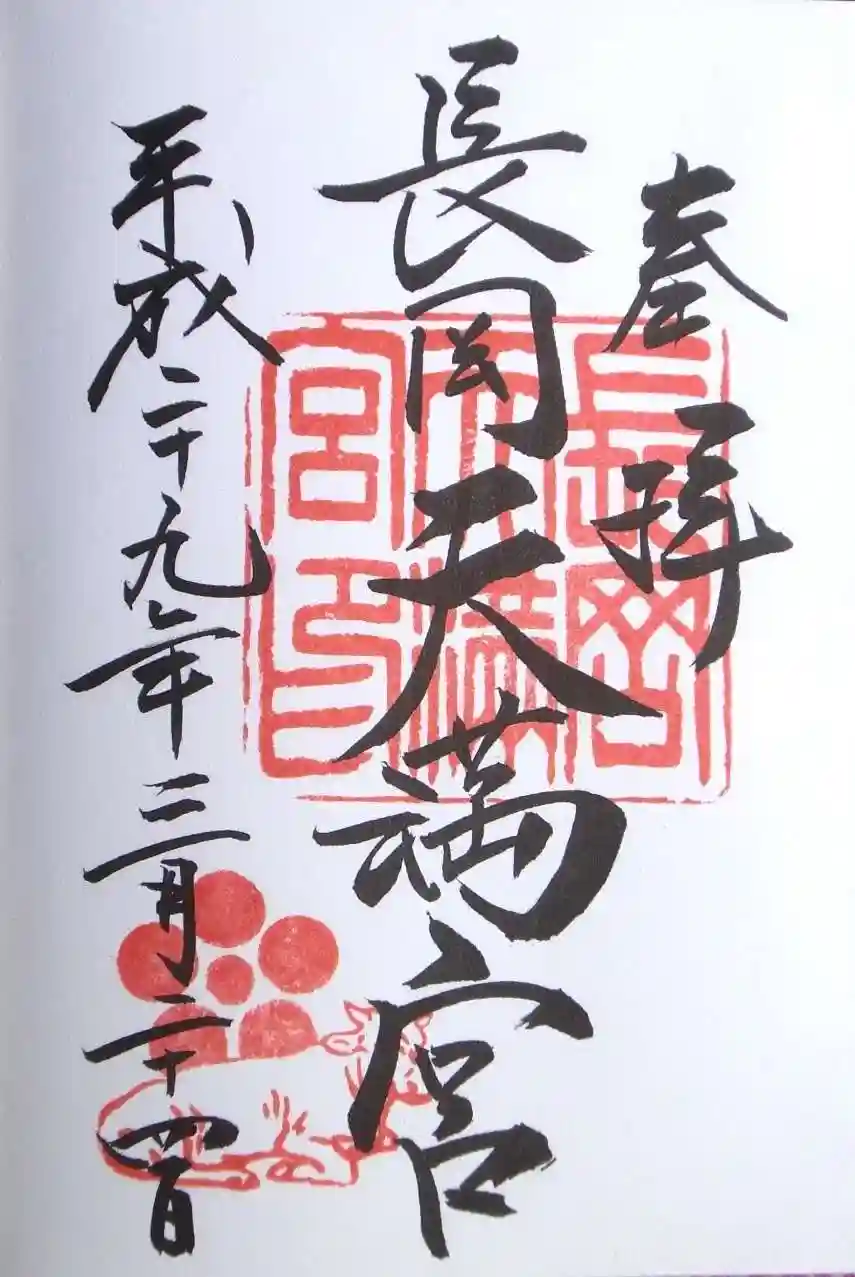 奉拝
長岡天満宮
平成二十九年三月二十四日
長岡
天満
宮印